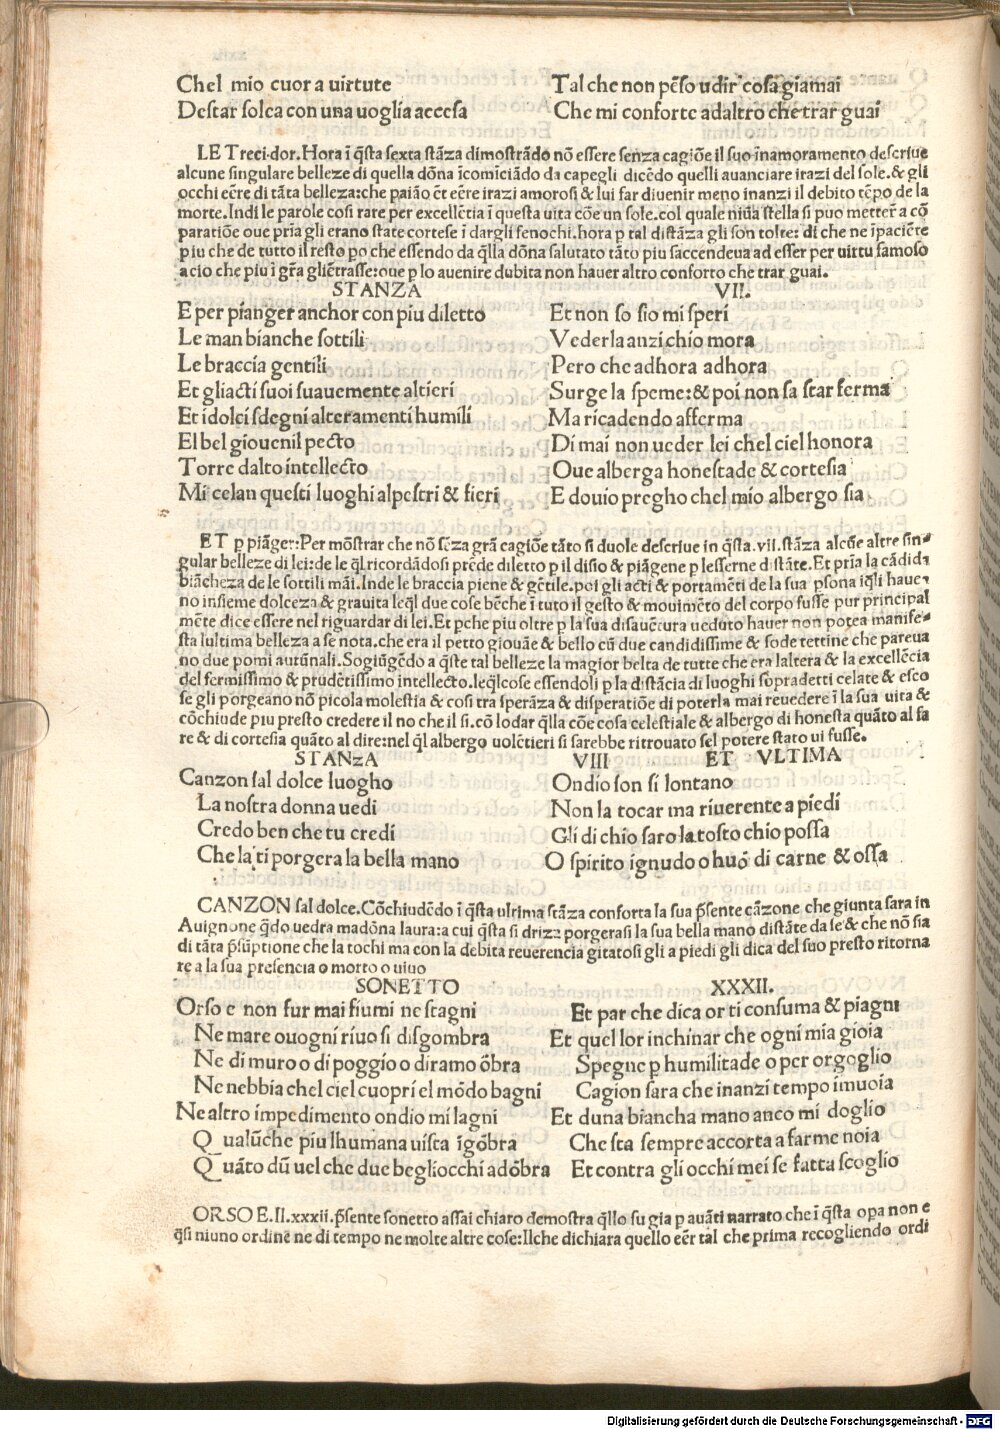 Chel mio cuor a uirtute
Destar solea con una uoglia accesa
Tal che non pēso udir cosa giamai
Che mi conforte adaltro che trar guai
LE Treci dor. Hora ī q̄sta sexta stāza dimostrādo nō essere senza cagiōe il suo īnamoramento descriue
alcune singulare belleze di quella dōna īcomiciādo da capegli dicēdo quelli auanciare irazi del sole. & gli
occhi eēre di tāta belleza: che paiāo ēt eēre irazi amorosi & lui far diuenir meno inanzi il debito tēpo de la
morte. Indi le parole cosi rare per excellētia ī questa uita cōe un sole. col quale niūa stella si puo metter a cō
paratiōe oue pria gli erano state cortese ī dargli fenochi. hora p tal distāza gli son tolte: di che ne ipaciēte
piu che de tutto il resto po che essendo da q̄lla dōna salutato tāto piu saccendeua ad esser per uirtu famoso
acio che piu ī gr̄a gliētrasse: oue p lo auenire dubita non hauer altro conforto che trar guai.
STANZA VII.
E per pianger anchor con piu diletto
Le man bianche sottili
Le braccia gentili
Et gliacti suoi suauemente altieri
Et idolci sdegni alteramenti humili
El bel giouenil pecto
Torre dalto intellecto
Mi celan questi luoghi alpestri & fieri
Et non so sio mi speri
Vederla anzi chio mora
Pero che adhora adhora
Surge la speme: & poi non sa star ferma
Ma ricadendo afferma
Di mai non ueder lei chel ciel honora
Oue alberga honestade & cortesia
E douio pregho chel mio albergo sia
ET p piāger: Per mōstrar che nō sēza grā cagiōe tāto si duole descriue in q̄sta. vii. stāza alcūe altre sin-
gular belleze di lei: de le q̄l ricordādosi prēde diletto p il disio & piāgene p lesserne distāte. Et pria la cādida
biācheza de le sottili māi. Inde le braccia piene & gētile. poi gli acti & portamēti de la sua psona iq̄li haue-
no insieme dolceza & grauita leq̄l due cose bēche ī tuto il gesto & mouimēto del corpo fusse pur principal
mēte dice essere nel riguardar di lei. Et pche piu oltre p la sua disauētura ueduto hauer non potea manife-
sta lultima belleza a se nota. che era il petto giouāe & bello cū due candidissime & sode tettine che pareua
no due pomi autūnali. Sogiūgēdo a q̄ste tal belleze la magior belta de tutte che era laltera & la excellēcia
del fermissimo & prudētissimo intellecto. leq̄lcose essendoli p la distācia di luoghi sopradetti celate & esco
se gli porgeano nō picola molestia & cosi tra sperāza & disperatiōe di poterla mai reuedere ī la sua uita &
cōchiude piu presto credere il no che il si. cō lodar q̄lla cōe cosa celestiale & albergo di honesta quāto al fa
re & di cortesia quāto al dire: nel q̄l albergo uolētieri si sarebbe ritrouato sel potere stato ui fusse.
STANzA VIII ET VLTIMA
Canzon sal dolce luogho
La nostra donna uedi
Credo ben che tu credi
Che la ti porgera la bella mano
Ondio son si lontano
Non la tocar ma riuerente a piedi
Gli di chio saro la tosto chio possa
O spirito ignudo o huō di carne & ossa
CANZON sal dolce. Cōchiudēdo ī q̄sta ultima stāza conforta la sua p̄sente cāzone che giunta sara in
Auignone q̄do uedra madōna laura: a cui q̄sta si driza porgerasi la sua bella mano distāte da se & che nō sia
di tāta p̄sūptione che la tochi ma con la debita reuerencia gitatosi gli a piedi gli dica del suo presto ritorna
re a la sua presencia o morto o uiuo
SONETTO XXXII.
Orso e non fur mai fiumi ne stagni
Ne mare ouogni riuo si disgombra
Ne di muro o di poggio o diramo ōbra
Ne nebbia chel ciel cuopri el mōdo bagni
Ne altro impedimento ondio mi lagni
Qualūche piu lhumana uista īgōbra
Quāto dū uel che due begliocchi adōbra
Et par che dica or ti consuma & piagni
Et quel lor inchinar che ogni mia gioia
Spegne p humilitade o per orgoglio
Cagion sara che inanzi tempo imuoia
Et duna biancha mano anco mi doglio
Che sta sempre accorta a farme noia
Et contra gli occhi mei se fatta scoglio
ORSO E. Il. xxxii. p̄sente sonetto assai chiaro demostra q̄llo su gia p auāti narrato che ī q̄sta opa non e
q̄si niuno ordine ne di tempo ne molte altre cose: Ilche dichiara quello eēr tal che prima recogliendo ordi
Digitalisierung gefördert durch die Deutsche Forschungsgemeinschaft - DFG